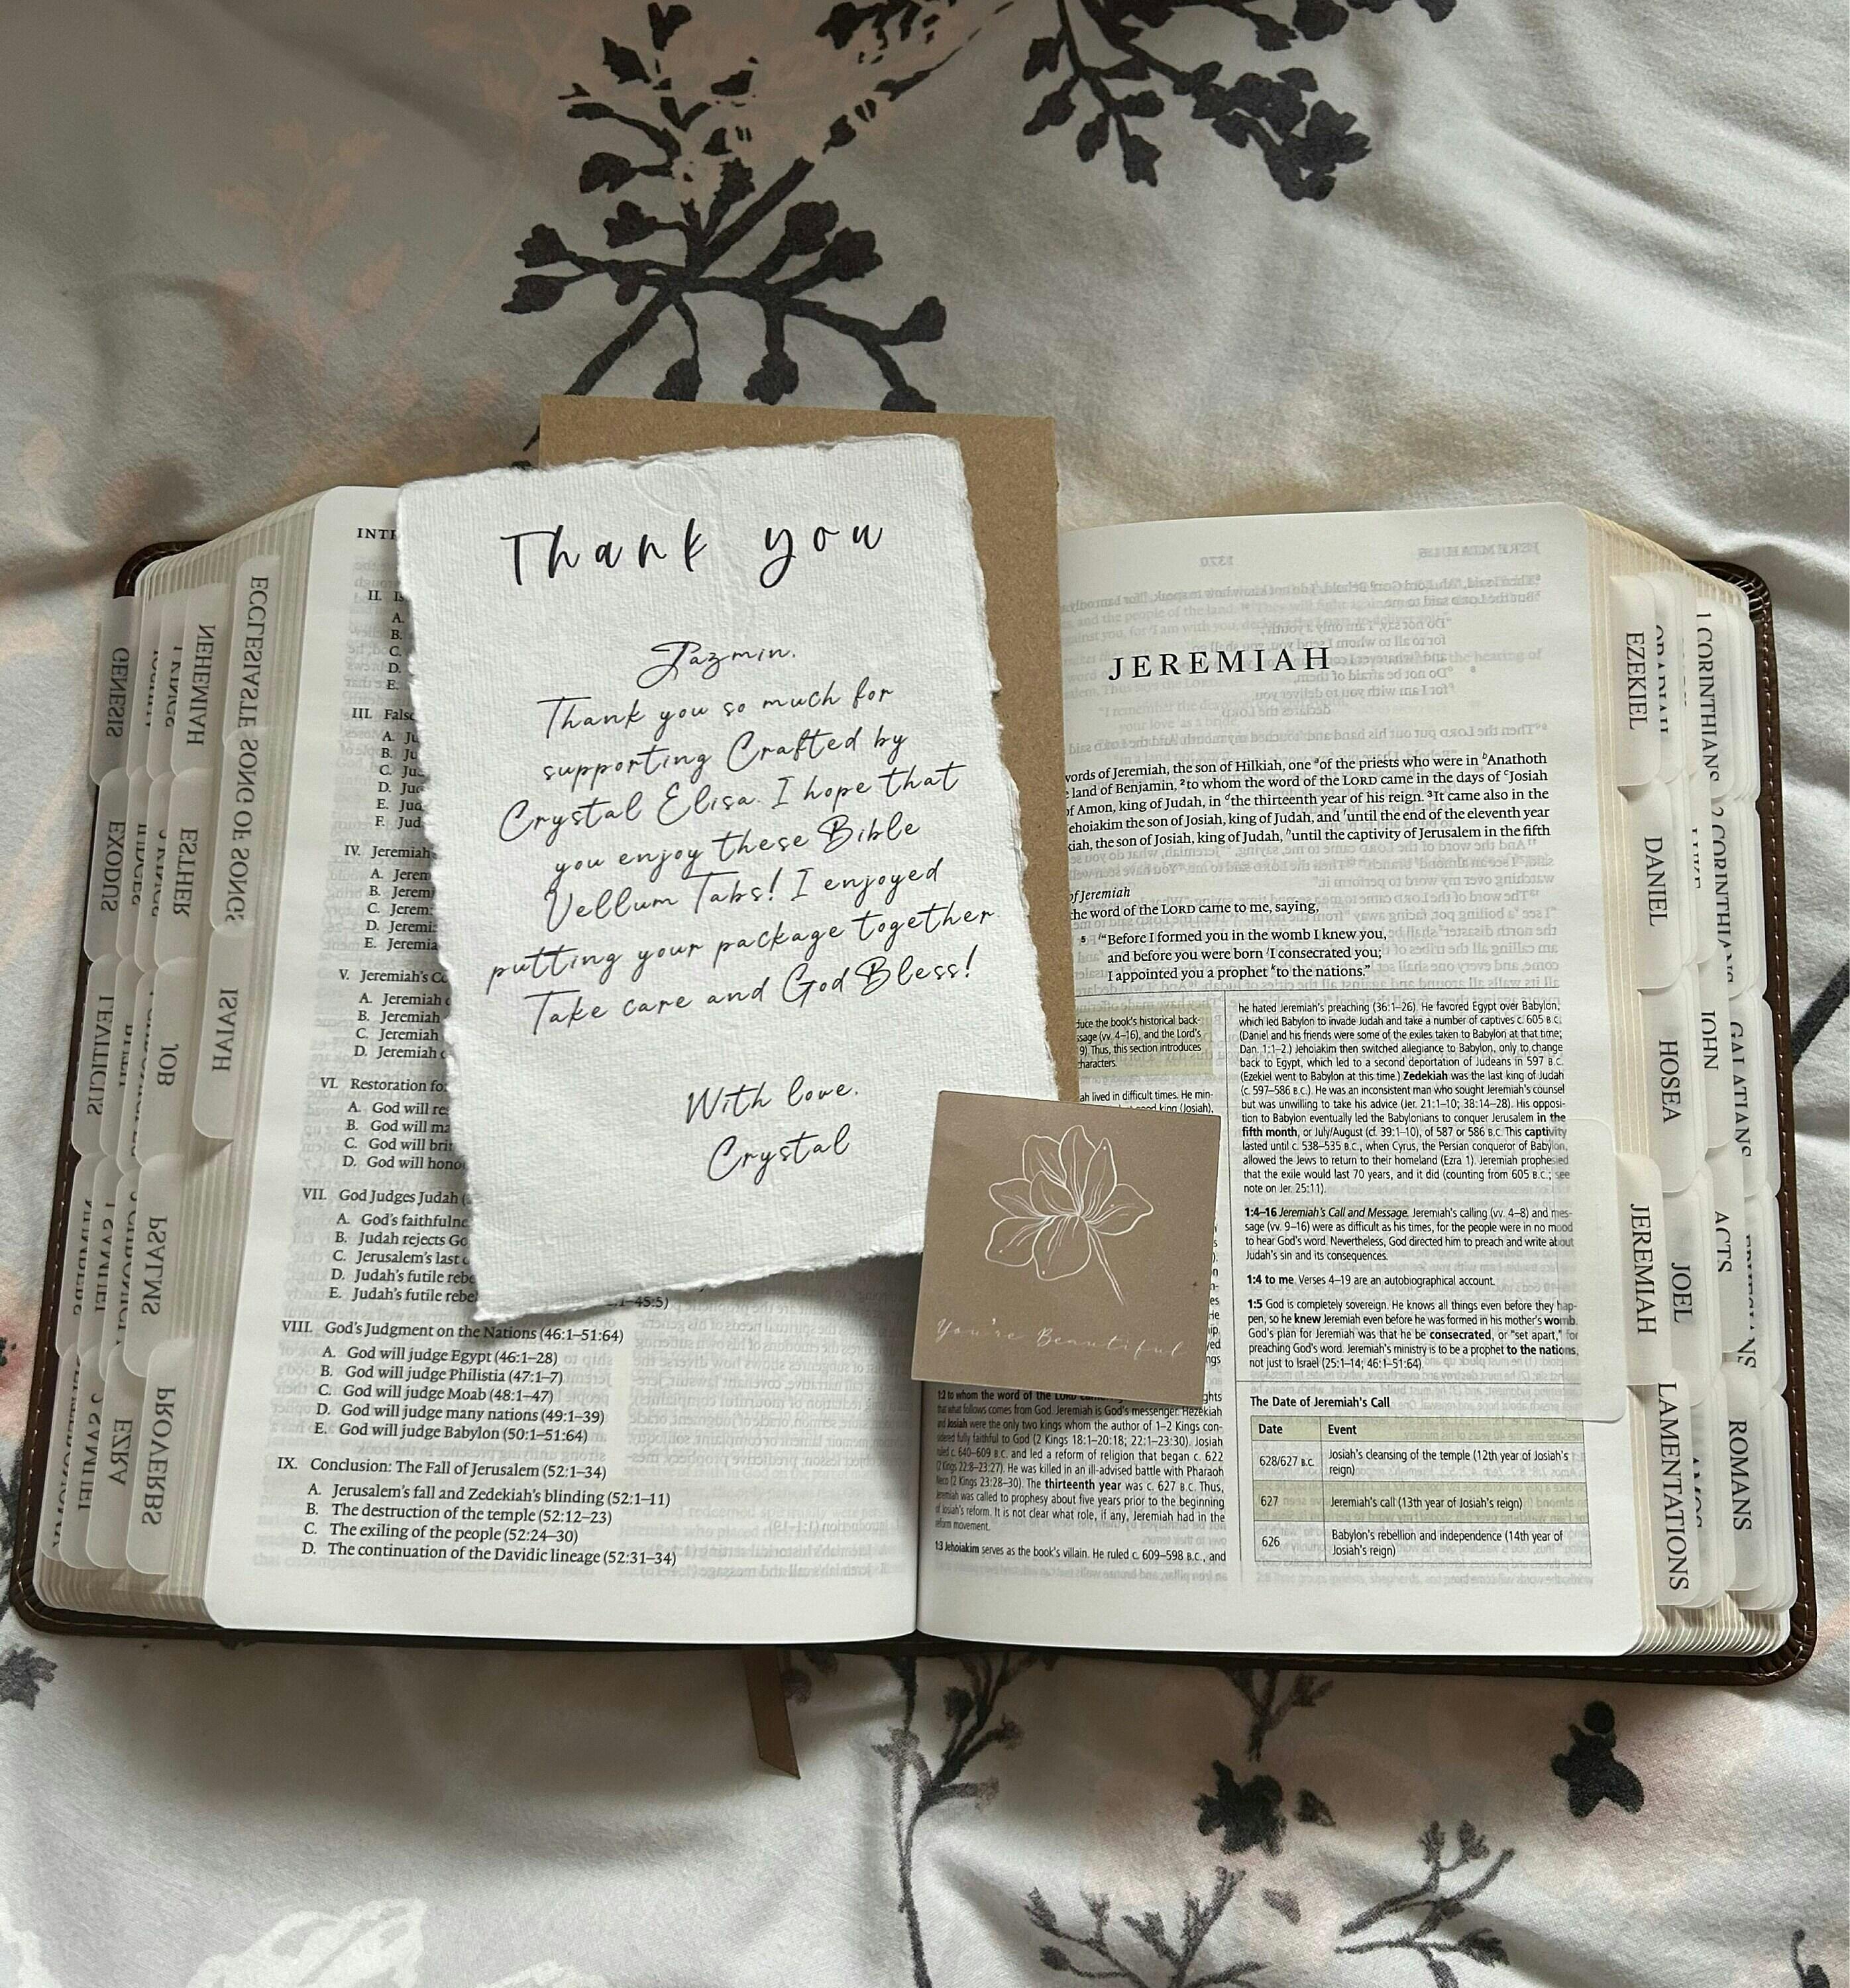 Thank you
Jazmin.
Thank you so much for
supporting Crafted by
Crystal Elisa. I hope that
you enjoy these Bible
Vellum Tabs! I enjoyed
putting your package together.
Take care and God Bless!
With love.
Crystal
You're Beautiful
GENESIS
EXODUS
LEVITICUS
NEHEMIAH
ESTHER
JOB
PSALMS
PROVERBS
EZRA
ECCLESIASTES
SONG OF SONGS
ISAIAH
II.
A.
B.
C.
D.
E.
III.
A.
B.
C.
D.
E.
F.
IV. Jeremiah
A.
B.
C.
D.
E. Jeremia
V. Jeremiah's
A. Jeremiah
B. Jeremiah
C. Jeremiah
D. Jeremiah
VI. Restoration
A. God will
B. God will
C. God will
D. God will
VII. God Judges Judah
A. God's
B. Judah rejects
C. Jerusalem's last
D. Judah's futile
E. Judah's futile 1–45:5)
VIII. God's Judgment on the Nations (46:1–51:64)
A. God will judge Egypt (46:1–28)
B. God will judge Philistia (47:1–7)
C. God will judge Moab (48:1–47)
D. God will judge many nations (49:1–39)
E. God will judge Babylon (50:1–51:64)
IX. Conclusion: The Fall of Jerusalem (52:1–34)
A. Jerusalem's fall and Zedekiah's blinding (52:1–11)
B. The destruction of the temple (52:12–23)
C. The exiling of the people (52:24–30)
D. The continuation of the Davidic lineage (52:31–34)
JEREMIAH
words of Jeremiah, the son of Hilkiah, one of the priests who were in Anathoth
land of Benjamin, ²to whom the word of the LORD came in the days of Josiah
of Amon, king of Judah, in the thirteenth year of his reign. ³It came also in the
ehoiakim the son of Josiah, king of Judah, and until the end of the eleventh year
kiah, the son of Josiah, king of Judah, until the captivity of Jerusalem in the fifth
of Jeremiah
the word of the LORD came to me, saying,
5 "Before I formed you in the womb I knew you,
and before you were born I consecrated you;
I appointed you a prophet to the nations."
duce the book's historical back-
ssage (vv. 4–16), and the Lord's
9) Thus, this section introduces
characters.
ah lived in difficult times. He min-
king (Josiah),
1:2 to whom the word of the LORD
that what follows comes from God. Jeremiah is God's messenger. Hezekiah
and Josiah were the only two kings whom the author of 1–2 Kings con-
sidered fully faithful to God (2 Kings 18:1–20:18; 22:1–23:30). Josiah
ruled c. 640–609 B.C. and led a reform of religion that began c. 622
(2 Kings 22:8–23:27). He was killed in an ill-advised battle with Pharaoh
Neco (2 Kings 23:28–30). The thirteenth year was c. 627 B.C. Thus,
Jeremiah was called to prophesy about five years prior to the beginning
of Josiah's reform. It is not clear what role, if any, Jeremiah had in the
reform movement.
1:3 Jehoiakim serves as the book's villain. He ruled c. 609–598 B.C., and
he hated Jeremiah's preaching (36:1–26). He favored Egypt over Babylon,
which led Babylon to invade Judah and take a number of captives c. 605 B.C.
(Daniel and his friends were some of the exiles taken to Babylon at that time;
Dan. 1:1–2.) Jehoiakim then switched allegiance to Babylon, only to change
back to Egypt, which led to a second deportation of Judeans in 597 B.C.
(Ezekiel went to Babylon at this time.) Zedekiah was the last king of Judah
(c. 597–586 B.C.). He was an inconsistent man who sought Jeremiah's counsel
but was unwilling to take his advice (Jer. 21:1–10; 38:14–28). His opposi-
tion to Babylon eventually led the Babylonians to conquer Jerusalem in the
fifth month, or July/August (cf. 39:1–10), of 587 or 586 B.C. This captivity
lasted until c. 538–535 B.C., when Cyrus, the Persian conqueror of Babylon,
allowed the Jews to return to their homeland (Ezra 1). Jeremiah prophesied
that the exile would last 70 years, and it did (counting from 605 B.C.; see
note on Jer. 25:11).
1:4–16 Jeremiah's Call and Message. Jeremiah's calling (vv. 4–8) and mes-
sage (vv. 9–16) were as difficult as his times, for the people were in no mood
to hear God's word. Nevertheless, God directed him to preach and write about
Judah's sin and its consequences.
1:4 to me. Verses 4–19 are an autobiographical account.
1:5 God is completely sovereign. He knows all things even before they hap-
pen, so he knew Jeremiah even before he was formed in his mother's womb.
God's plan for Jeremiah was that he be consecrated, or "set apart," for
preaching God's word. Jeremiah's ministry is to be a prophet to the nations,
not just to Israel (25:1–14; 46:1–51:64).
The Date of Jeremiah's Call
Date Event
628/627 B.C. Josiah's cleansing of the temple (12th year of Josiah's
reign)
627 Jeremiah's call (13th year of Josiah's reign)
626 Babylon's rebellion and independence (14th year of
Josiah's reign)
EZEKIEL
DANIEL
HOSEA
JOEL
JEREMIAH
LAMENTATIONS
1 CORINTHIANS
2 CORINTHIANS
JOHN
GALATIANS
ACTS
ROMANS